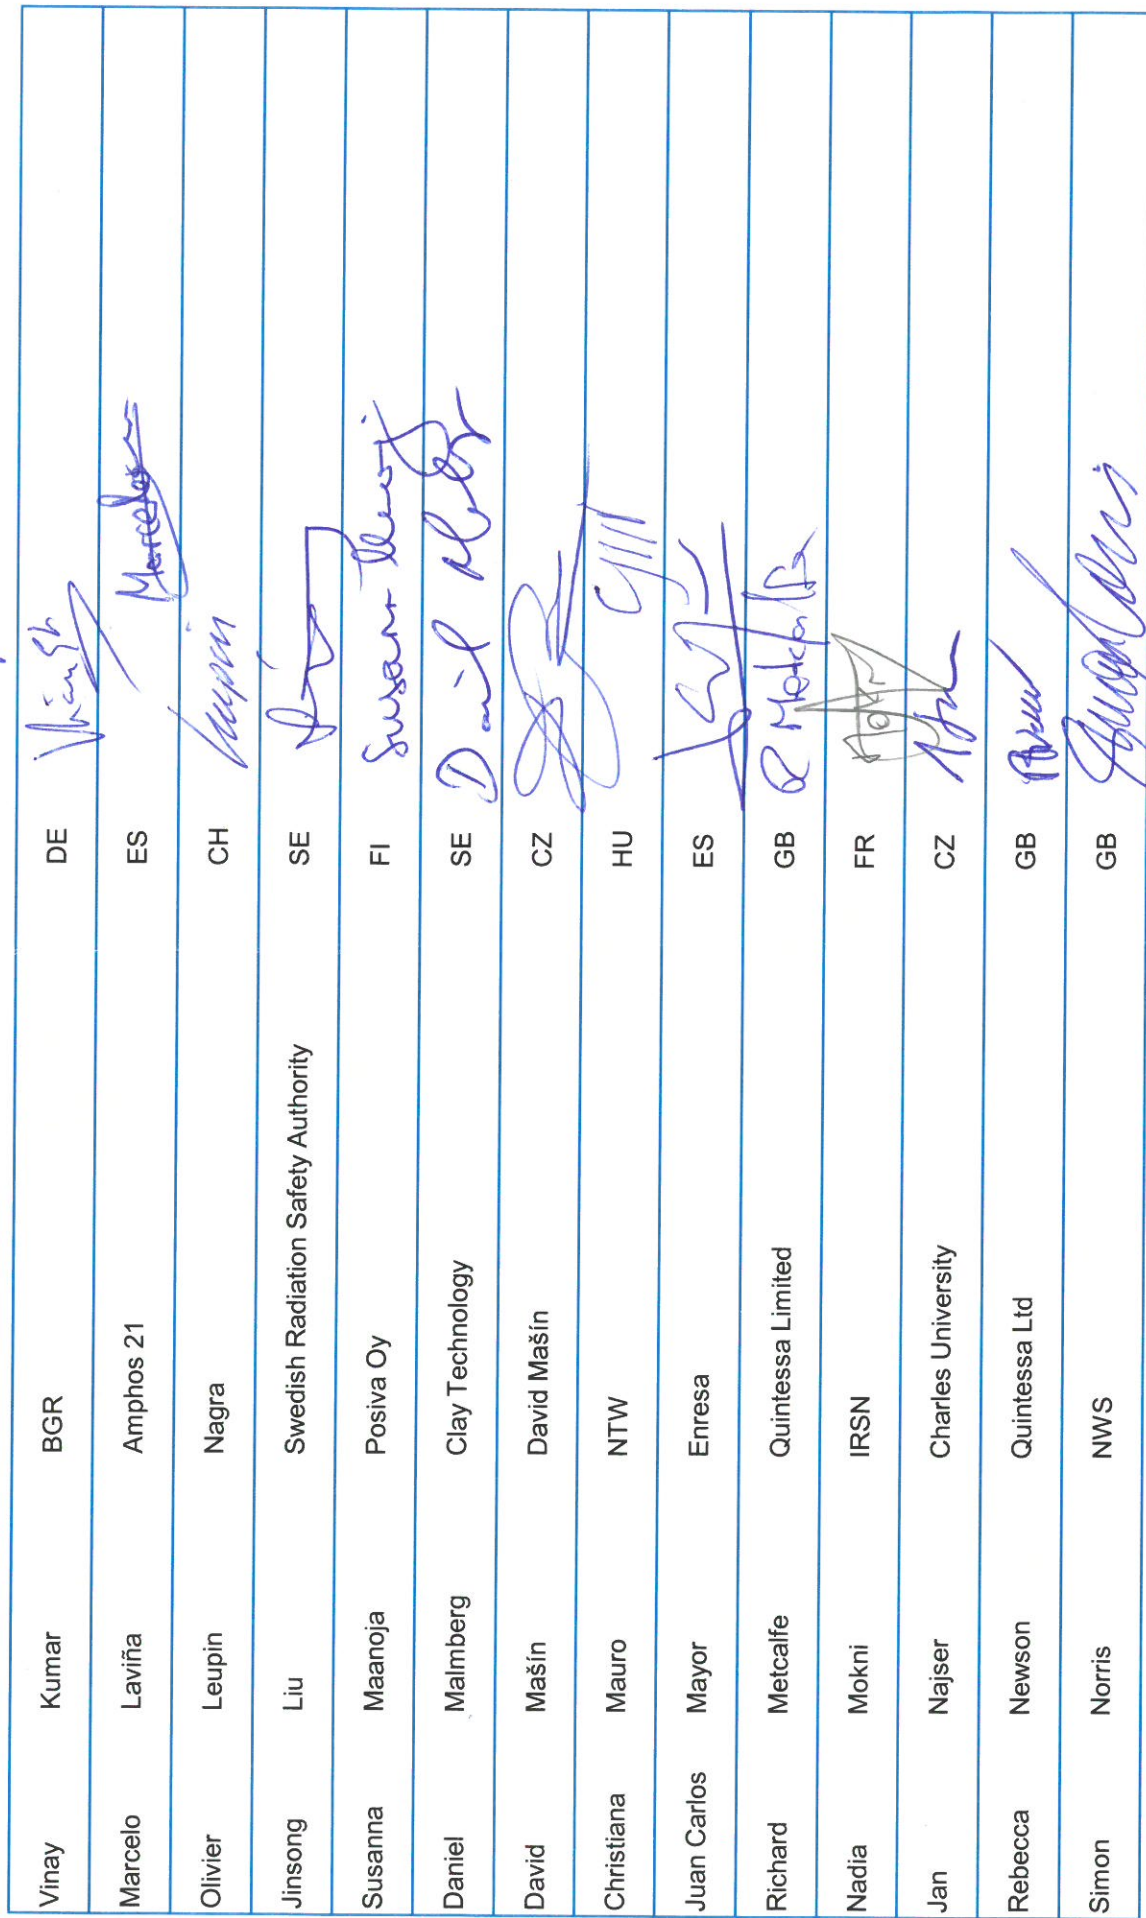 Vinay Kumar BGR DE
Marcelo Laviña Amphos 21 ES Marcelo
Olivier Leupin Nagra CH Leupin
Jinsong Liu Swedish Radiation Safety Authority SE
Susanna Maanoja Posiva Oy FI Susanna
Daniel Malmberg Clay Technology SE Daniel
David Mašín David Mašín CZ
Christiana Mauro NTW HU
Juan Carlos Mayor Enresa ES
Richard Metcalfe Quintessa Limited GB R Metcalfe
Nadia Mokni IRSN FR
Jan Najser Charles University CZ
Rebecca Newson Quintessa Ltd GB
Simon Norris NWS GB